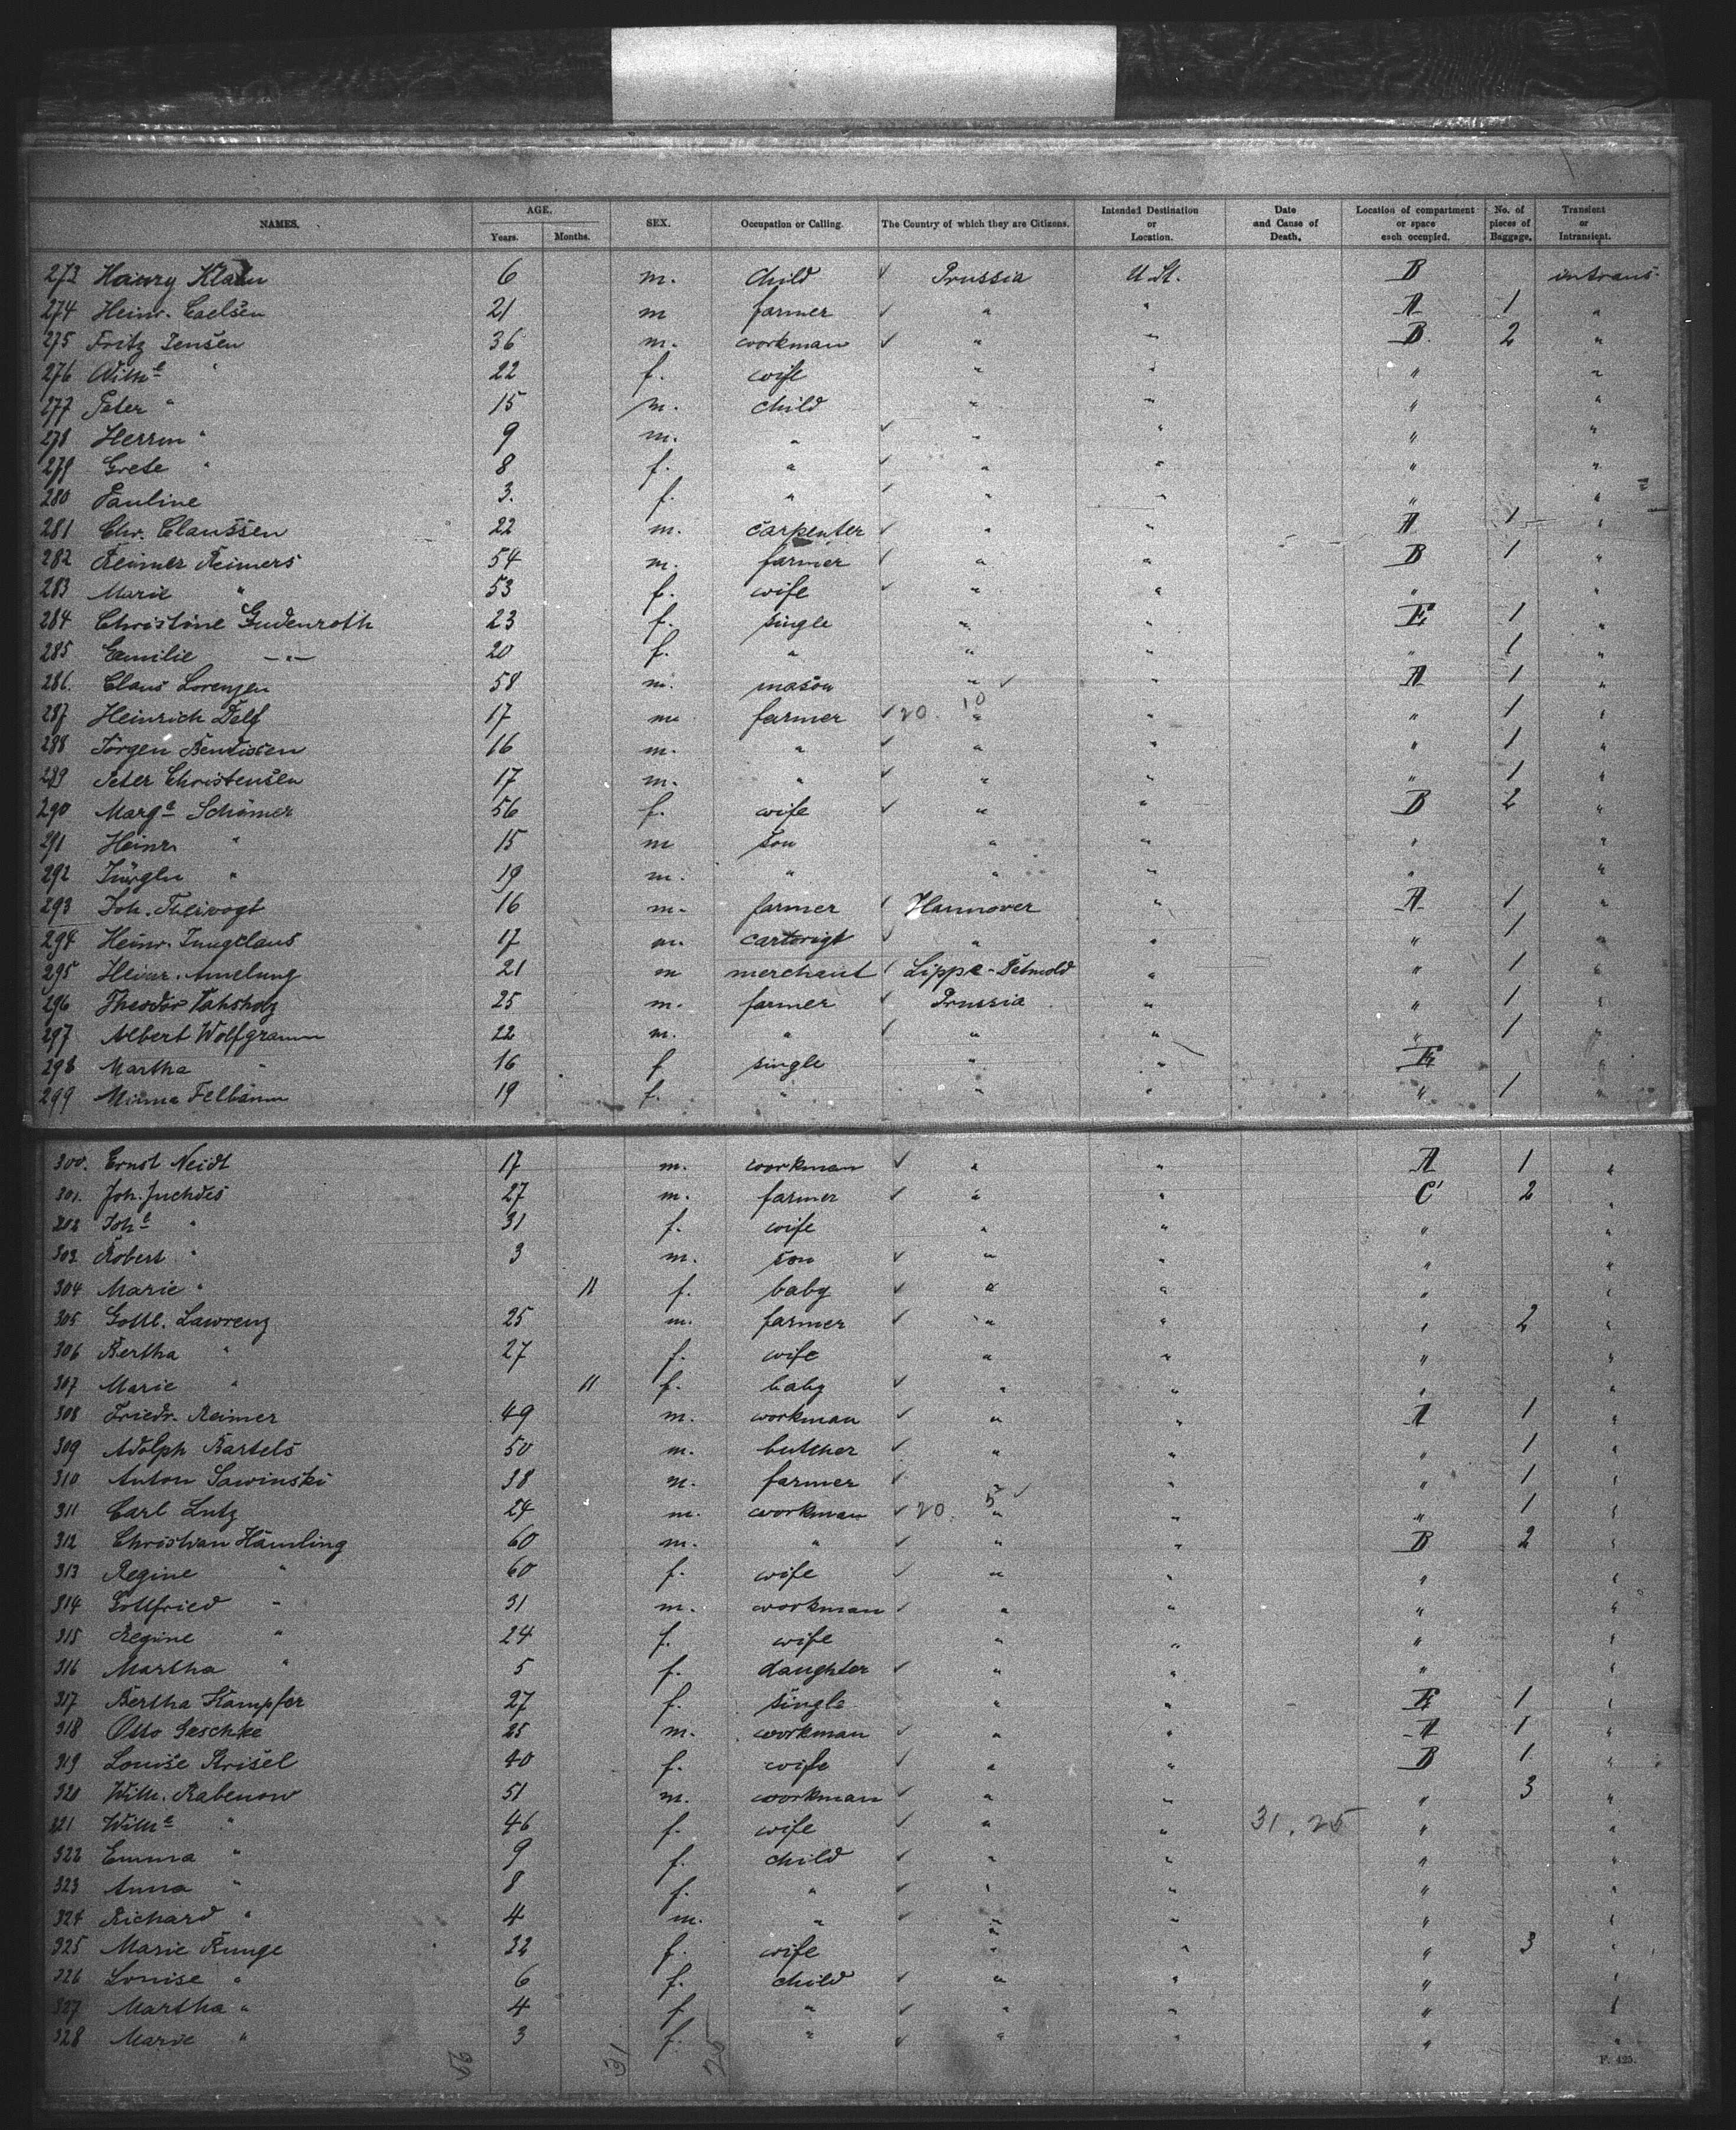 NAMES. AGE. Years. Months. SEX. Occupation or Calling. The Country of which they are Citizens. Intended Destination or Location. Date and Cause of Death. Location of compartment or space each occupied. No. of pieces of Baggage. Transient or Intransient.
273 Haury 6 m. Child Prussia U. St. B intrans.
274 Heinr. Caelsen 21 m farmer " " A 1 "
275 Fritz Jensen 36 m. workman " " B 2 "
276 Wilhe " 22 f. wife " " " "
277 Peter " 15 m. child " " " "
278 Herrm " 9 m. " " " " "
279 Grete " 8 f. " " " " "
280 Pauline 3. f. " " " " "
281 Chr. Claussen 22 m. carpenter " " A 1 "
282 Reimer Reimers 54 m. farmer " " B 1 "
283 Marie " 53 f. wife " " " "
284 Christine Gudenroth 23 f. single " " E 1 "
285 Emilie -"- 20 f. " " " " 1 "
286. Claus Lorenzen 58 m. mason " " A 1 "
287 Heinrich 17 m. farmer 20 10 " " " 1 "
288 Jörgen Bendixen 16 m. " " " " 1 "
289 Peter Christensen 17 m. " " " " 1 "
290 Marge Schömer 56 f. wife " " B 2 "
291 Heinr. " 15 m son " " " "
292 " 19 m. " " " " "
293 Joh. 16 m. farmer Hannover " A 1 "
294 Heinr. Jungclaus 17 m. cartwrigt " " " 1 "
295 Heinr. Amelung 21 m merchant Lippe-Detmold " " 1 "
296 Theodor 25 m. farmer Prussia " " 1 "
297 Albert Wolfgramm 22 m. " " " " 1 "
298 Martha " 16 f single " " E "
299 Minna Felbaum 19 f. " " " " 1 "
300. Ernst Neidt 17 m. workman " " A 1 "
301. Joh. Juchdes 27 m. farmer " " C 2 "
302 Johe " 31 f. wife " " " "
303 Robert " 3 m. son " " " "
304 Marie " 11 f. baby " " " "
305 Gottl. Lawrenz 25 m. farmer " " " 2 "
306 Bertha " 27 f. wife " " " "
307 Marie " 11 f. baby " " " "
308 Friedr. Reimer 49 m. workman " " A 1 "
309 Adolph Bartels 50 m. butcher " " " 1 "
310 Anton Sawinski 38 m. farmer " " " 1 "
311 Carl Lutz 24 m. workman 20. 5 " " " 1 "
312 Christian Hämling 60 m. " " " B 2 "
313 Regine " 60 f. wife " " " "
314 Gottfried " 31 m. workman " " " "
315 Regine " 24 f. wife " " " "
316 Martha " 5 f. daughter " " " "
317 Bertha Kampfer 27 f. single " " E 1 "
318 Otto Geschke 25 m. workman " " A 1 "
319 Louise Krisel 40 f. wife " " B 1 "
320 Wilh. Rabenow 51 m. workman " " " 3 "
321 Wilhe " 46 f. wife " " 31.25 " "
322 Emma " 9 f. child " " " "
323 Anna " 8 f. " " " " "
324 Richard " 4 m. " " " " "
325 Marie Runge 32 f. wife " " " 3 "
326 Louise " 6 f. child " " " "
327 Martha " 4 f " " " " "
328 Marie " 3 f. " " " " "
56 31 25
F. 425.